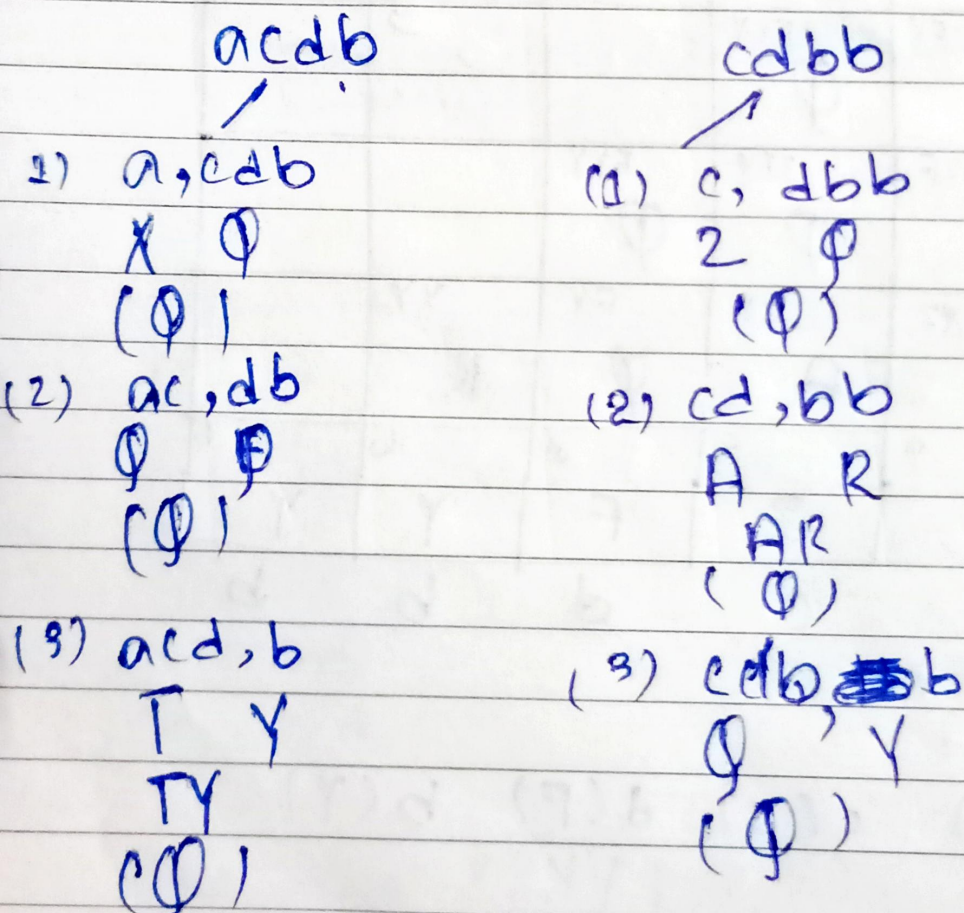 acdb
1) a,cdb
X φ
(φ)
(2) ac,db
φ φ
(φ)
(3) acd,b
T Y
TY
(φ)
cdbb
(1) c, dbb
2 φ
(φ)
(2) cd,bb
A R
AR
(φ)
(3) cdb, b
φ Y
(φ)